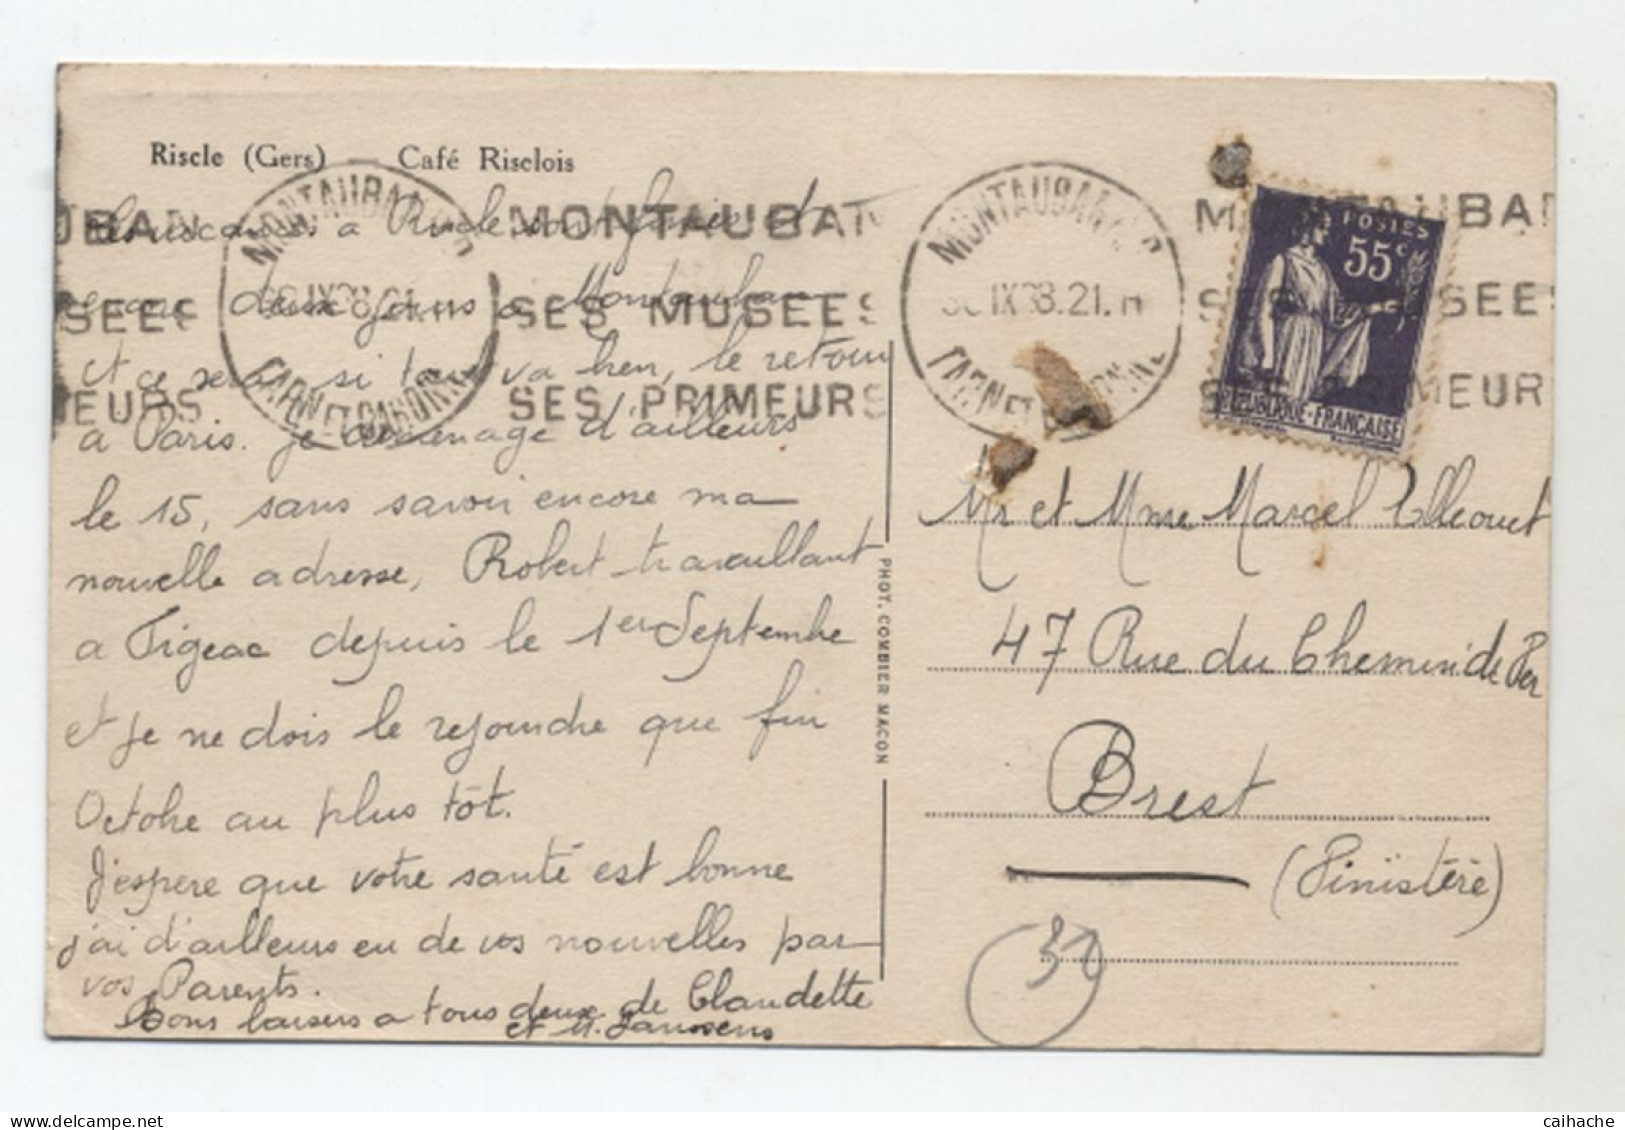 Riscle (Gers) — Café Risclois
Les vacances à Riscle sont finies et
encore deux jours à Montauban
et ce sera si tout va bien, le retour
a Paris. je déménage d'ailleurs
le 15, sans savoir encore ma
nouvelle adresse, Robert travaillant
a Figeac depuis le 1er Septembre
et je ne dois le rejoindre que fin
Octobre au plus tôt.
J'espere que votre santé est bonne
j'ai d'ailleurs eu de vos nouvelles par
vos Parents.
Bons baisers a tous deux de Claudette
et M. Janssens
PHOT. COMBIER MACON
MONTAUBAN
TARN ET GARONNE
IX 38
MONTAUBAN
SES MUSEES
SES PRIMEURS
MONTAUBAN
TARN ET GARONNE
IX 38.21.H
MONTAUBAN
SES MUSEES
SES PRIMEURS
POSTES
55c
REPUBLIQUE-FRANÇAISE
Mr et Mme Marcel
47 Rue du Chemin de Fer
Brest
(Finistère)
caihache